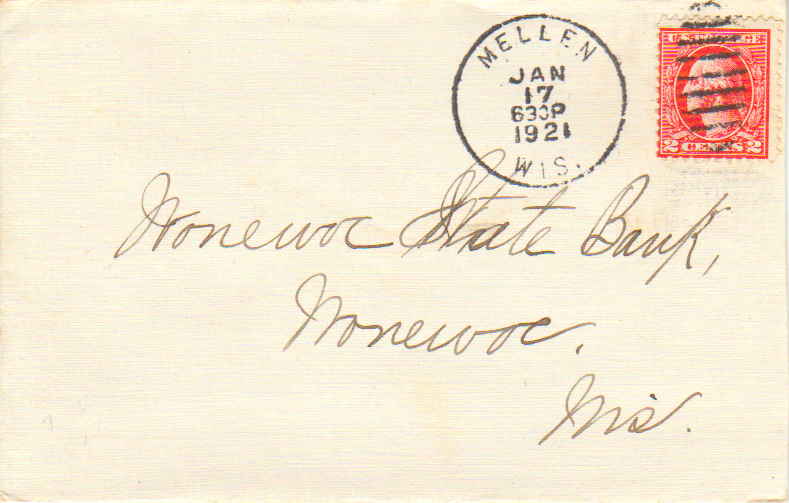 MELLEN
JAN
17
630P
1921
WIS.
U.S. POSTAGE
2 CENTS 2
Wonewoc State Bank,
Wonewoc.
Wis.